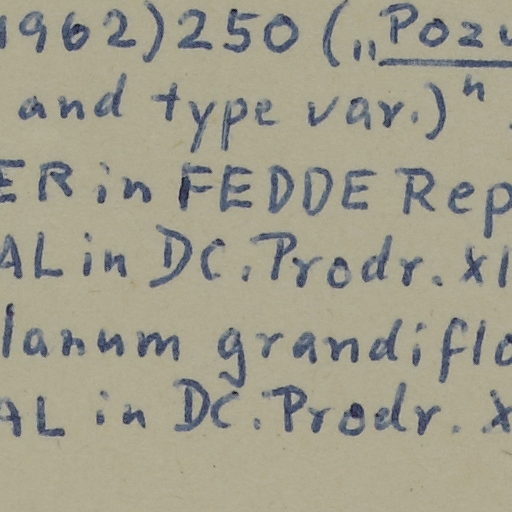 1962) 250 („Pozu
and type var.)"
ER in FEDDE Rep
AL in DC. Prodr. XI
lanum grandiflo
AL in DC. Prodr. X